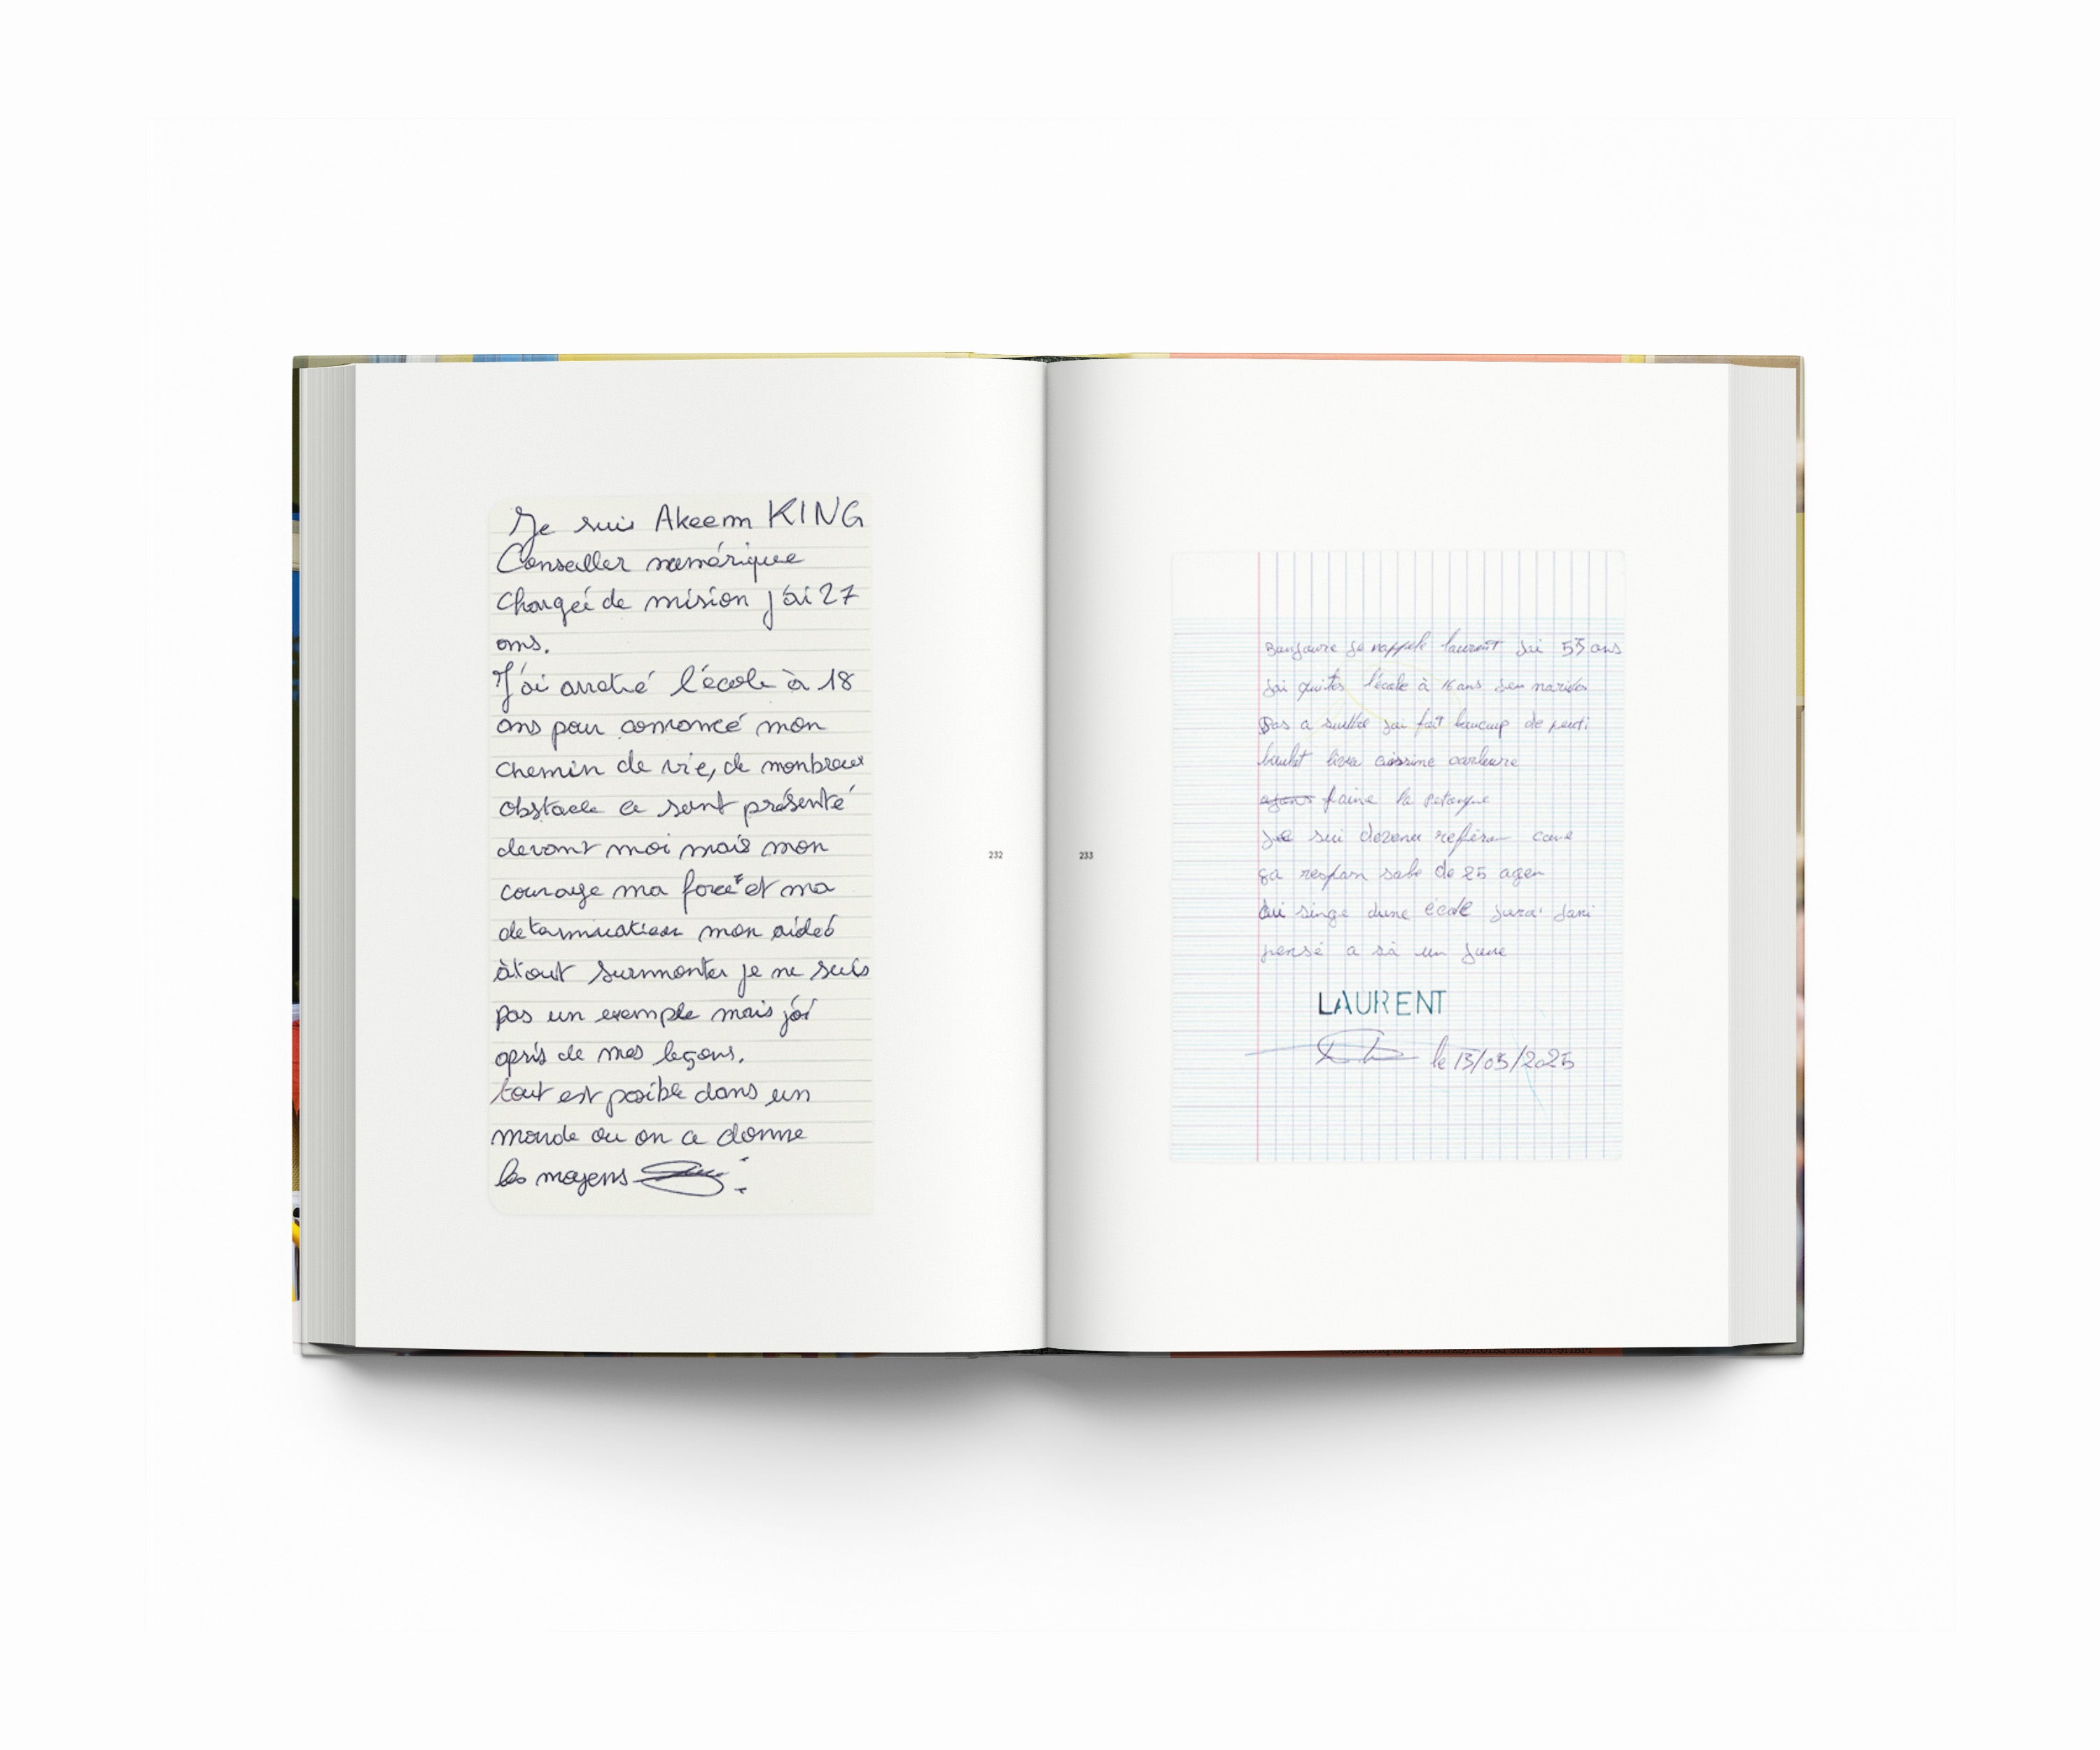 Je suis Akeem KING
Conseiller numérique
Chargéé de mision j'ai 27
ans.
J'ai arreté l'école à 18
ans pour comomcé mon
chemin de vie, de monbreux
obstacle ce sont présenté
devant moi mais mon
courage ma force et ma
determination mon aideé
àtout surmonter je ne suis
pas un exemple mais j'ai
apris de mes leçons.
tout est posible dans un
monde ou on a donne
les moyens
232
233
Bonjoure je rappele laurent Jai 53 ans
jai quites l'école à 16 ans
pas a jai fait baucup de peuti
faire la petanque
sui
ga respon sable de 25 agen
dune école
pensé a sà un june
LAURENT
le 13/05/2025